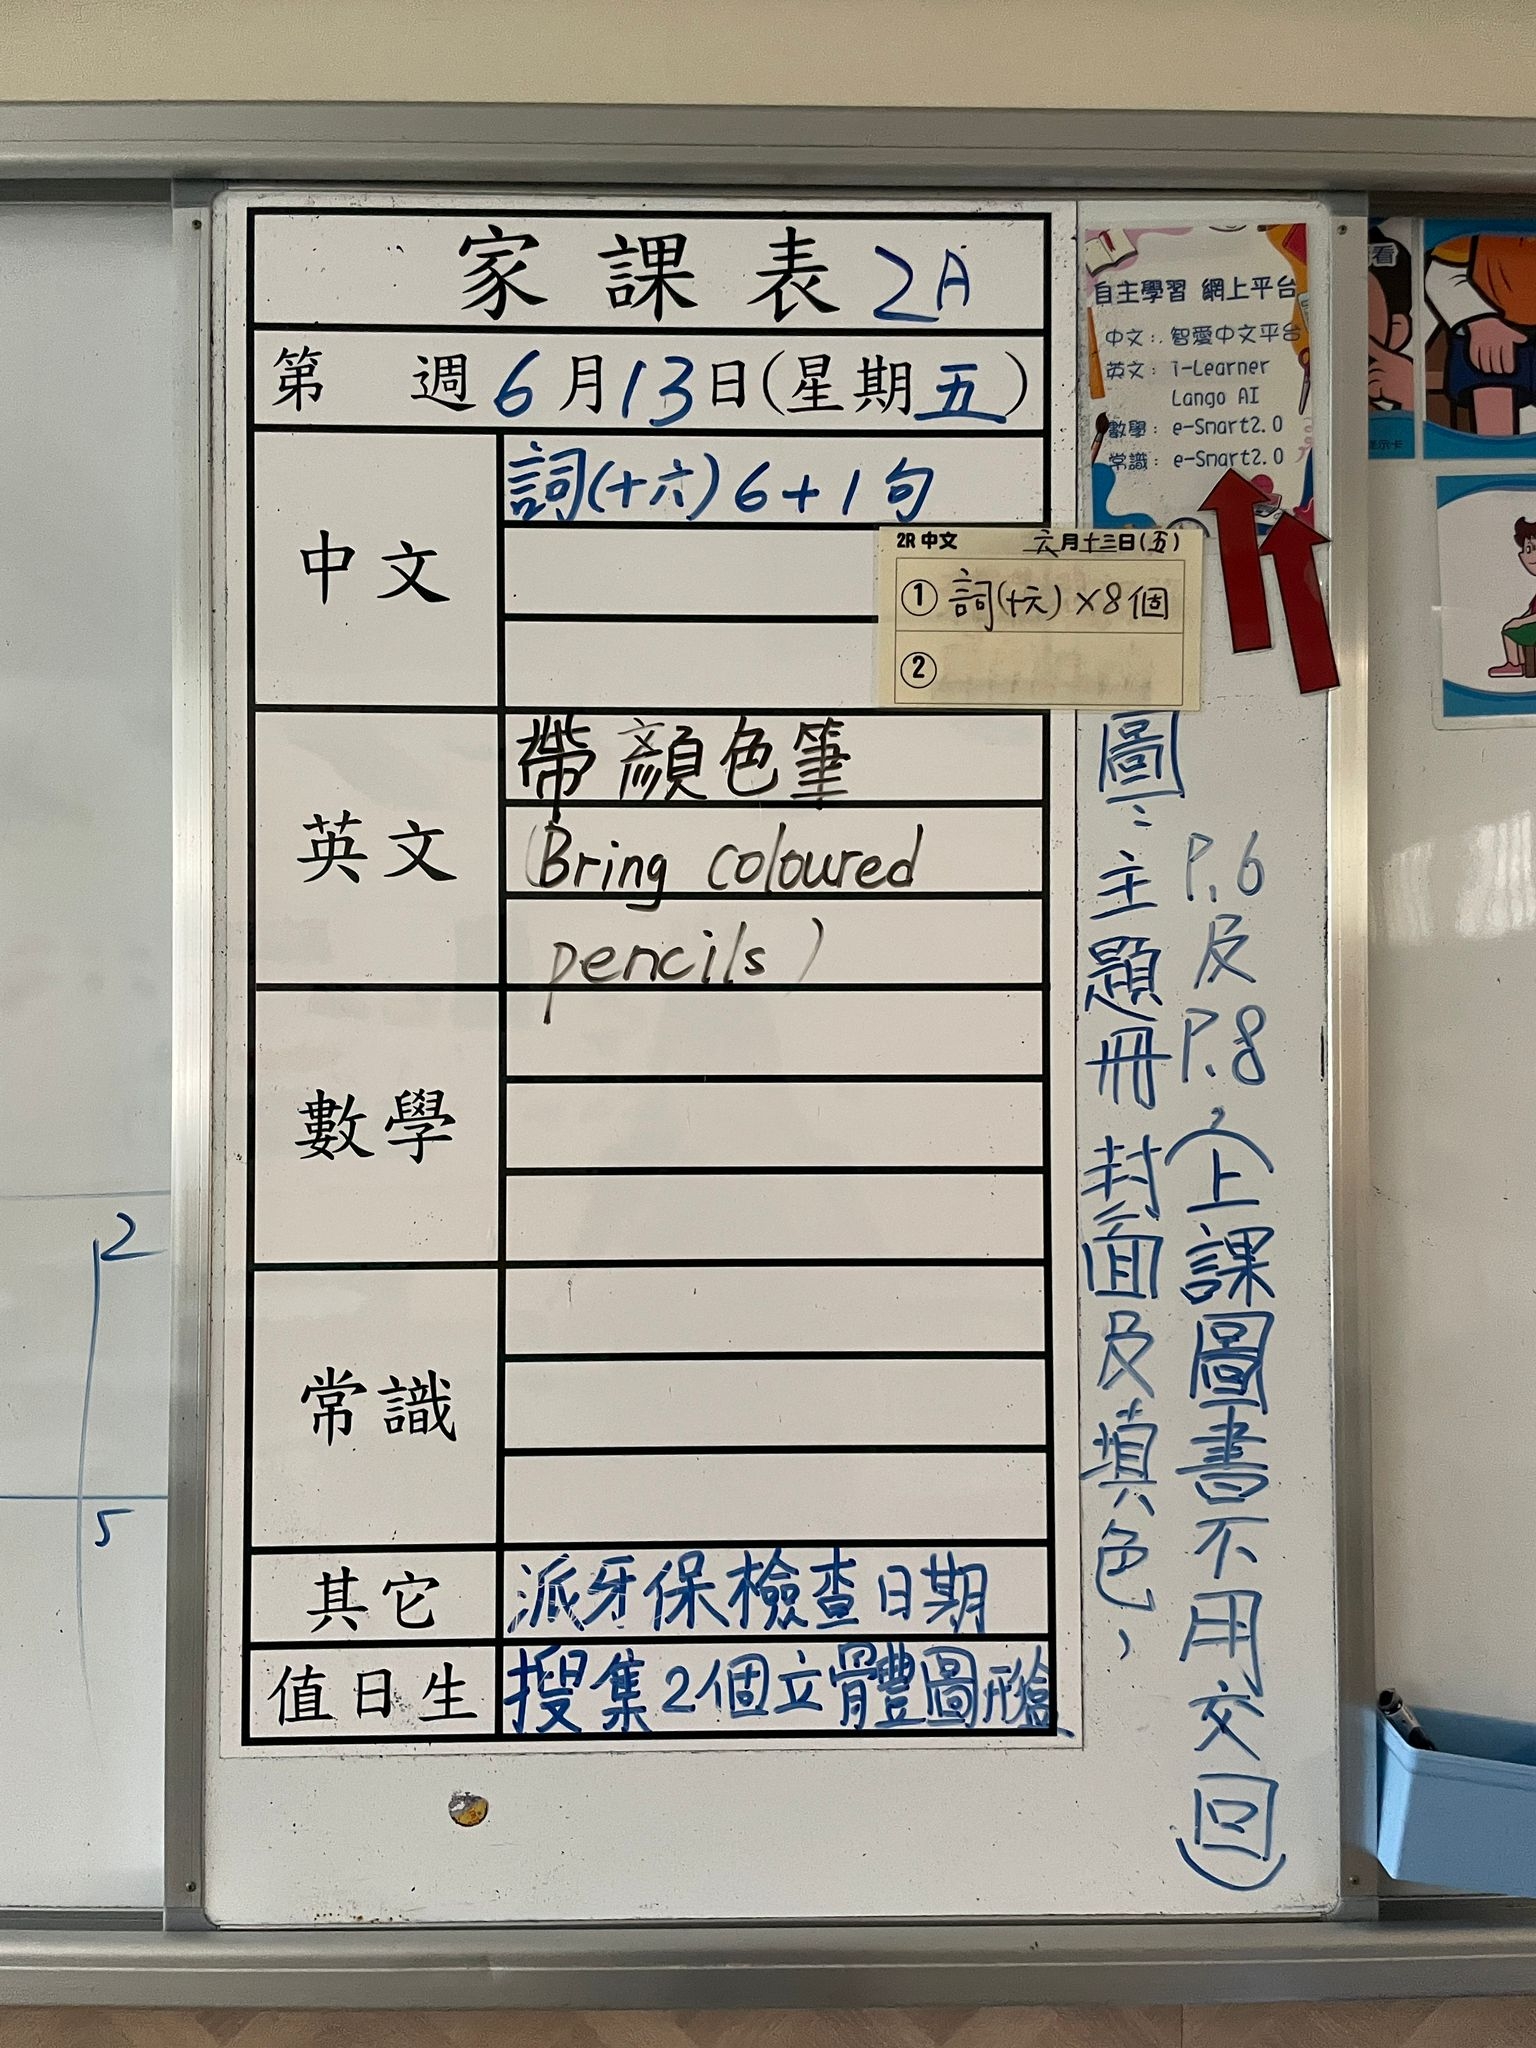 家課表 2A
第 週 6月13日(星期五)
中文
詞(十六) 6+1句
2R 中文 六月十三日(五)
① 詞(十六)×8個
②
英文
帶顏色筆
(Bring coloured
pencils)
數學
常識
其它
派牙保檢查日期
值日生
搜集2個立體圖形盒
自主學習 網上平台
中文: 智愛中文平台
英文: i-Learner
Lango AI
數學: e-Smart2.0
常識: e-Smart2.0
圖: 主題冊封面及填色,
P.6及P.8,(上課圖書不用交回)
看
示卡
2
5